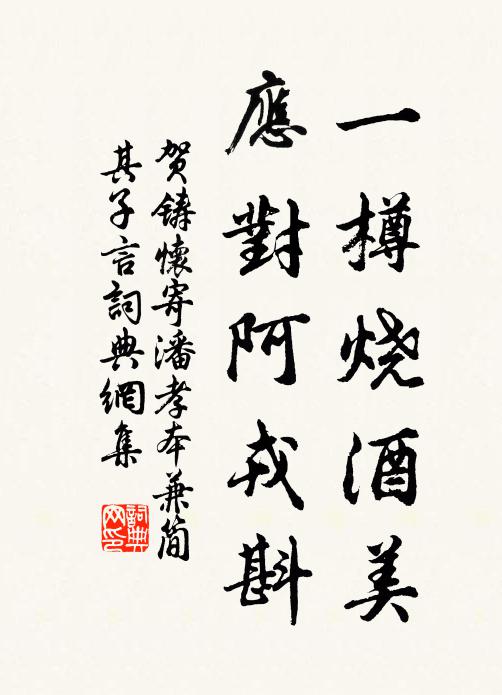 一樽烧酒美
應對阿戎斟
贺鑄懷寄潘孝本兼簡
其子言詞典網集
詞典
网印